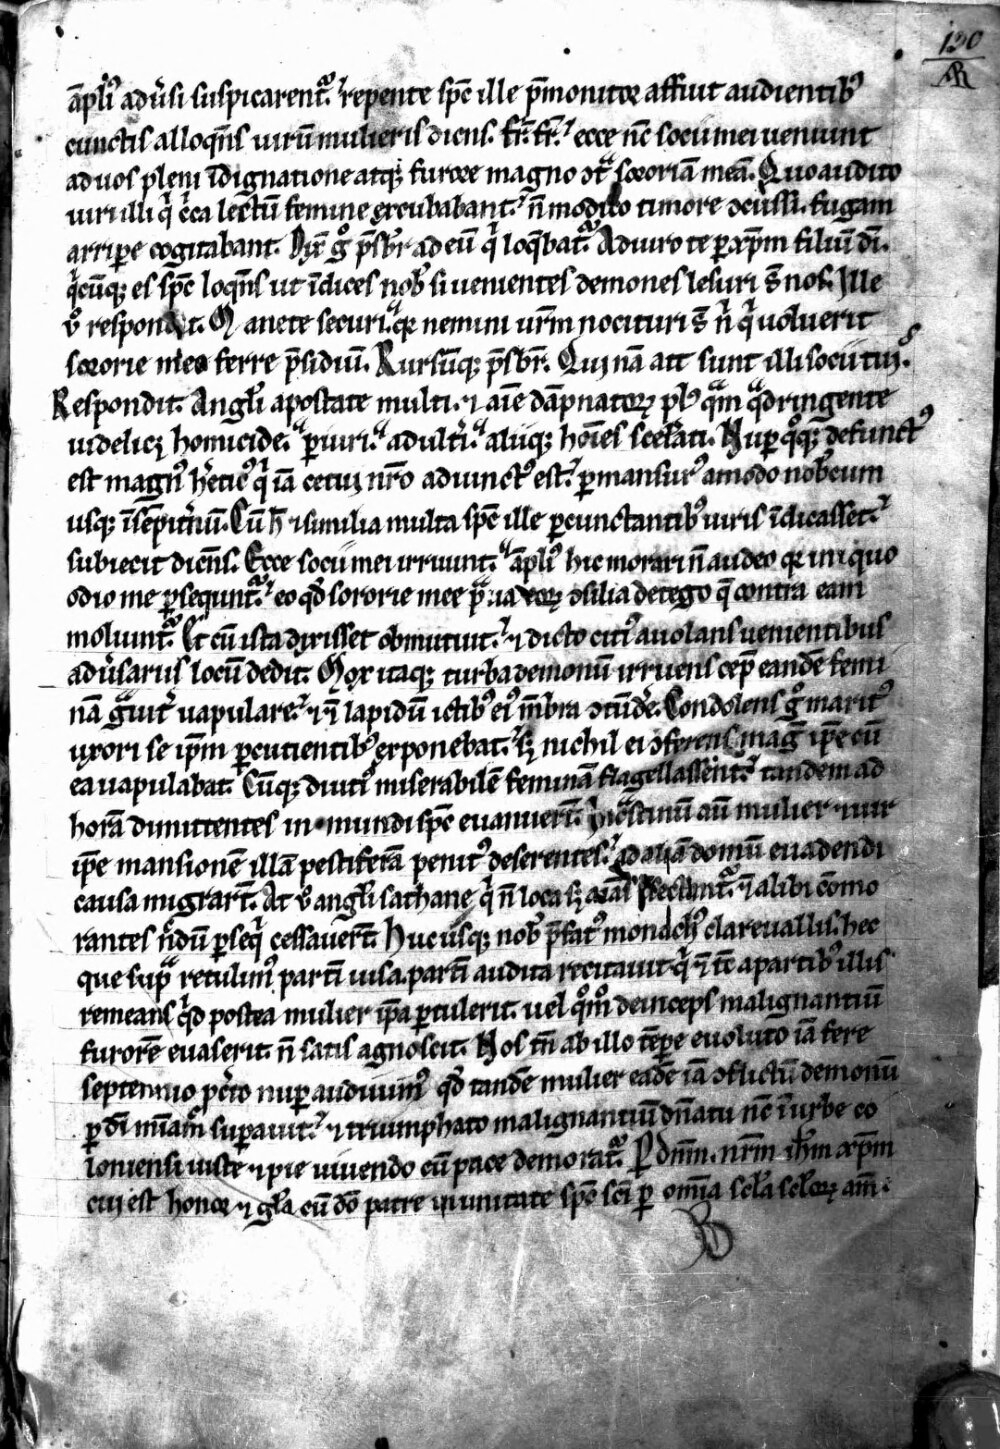 130
āpli᷒ adūsi suspicarent᷑. repente sp̄c ille p̄monitor affuit audientib᷒
cunctis alloqn̄s uirū mulieris dicns. fr̄. fr̄. ecce nc̄ socii mei ueniunt
ad uos pleni īdignatione atq; furore magno ↄt̄ sororiā meā. Quo audito
uiri illi q̇ c̄ca lectū femine excubabant. n̄ modico timore ↄcussi. fugam
arripe cogitabant. Dix̄ g̊ p̄sbr̄ ad eū q̇ loq̄bat᷑. Adiuro te p xp̄m filiū dī.
q̇cūq; es sp̄c loqn̄s ut īdices nob᷒ si uenientes demones lesuri s̄t nos. Ille
ů respondit. Manete securi. qr nemini ur̄m nocituri s̄t n̄ q̇ uoluerit
sororie mee ferre p̄sidiū. Rursūq; p̄sbr̄. Qui nā ait sunt illi socii tui?
Respondit. Angl̄i apostate multi. ⁊ aīe dāpnatorꝝ pl᷒ q̄m q̄dringente
uidelicꝫ homicide. piuri. adult̄i. aliiq; hoīes scel̄ati. Nup q̊q; defunct᷒
est magn᷒ h̄etic᷒ q̇ iā cetui nr̄o adiunct᷒ est. pmansur᷒ amodo nob᷒cum
usq; ī sēpit̄nū. Cū h̄ ⁊ similia multa sp̄c ille pcunctantib᷒ uiris īdicasset.
subiecit dicēs. Ecce socii mei irruunt. āpli᷒ hic morari n̄ audeo qr iniquo
odio me psequnt᷑. eo qd̄ sororie mee eorꝝ ↄsilia detego q̄ contra eam
moliunt᷑. Et cū ista dixisset obmutuit. ⁊ dicto citi᷒ auolans uenientibus
adūsariis locū dedit. Mox itaq; turba demonū irruens cep̄ eandē femi
nā g̃uit̄ uapulare. ⁊ ī lapidū ictib᷒ ei᷒ mēbra ↄtūde. Condolens g̊ marit᷒
uxori se ip̄m pcutientib᷒ exponebat. sꝫ nichil ei ↄferens mag̅ ip̄e cū
ea uapulabat. Cūq; diuti᷒ miserabilē feminā flagellassent. tandem ad
horā dimittentes inmundi sp̄c euanuer̄t. In c̃stinū aū mulier ⁊ uir
ip̄e mansionē illā pestiferā penit᷒ deserentes. ad aliā domū euadendi
causa migrar̄t. At ů angl̄i sathane q̇ n̄ loca sꝫ aīas sectant᷑. ⁊ alibi cōmo
rantes n̄dū pseq̇ cessauer̄t. Huc usq; nob᷒ p̄fat᷒ monach᷒ clareuallis. hec
que sup̃ retulim᷒ partī uisa. partī audita recitauit. q̇ ⁊ tc̄ a partib᷒ illis
remeans q̇d postea mulier ip̄a ptulerit. uel q̊m̊ deinceps malignantiū
furorē euaserit. n̄ satis agnoscit. Nos tn̄ ab illo tēpe euoluto iā fere
septennio pc̄to nup audiuim᷒ qd̄ tandē mulier eadē iā ↄflictū demonū
p dī mīam supauit. ⁊ triumphato malignantiū dn̄atu nc̄ ī urbe co
loniensi iuste ⁊ pie uiuendo cū pace demorat᷑. P dn̄m. nr̄m ih̄m xp̄m
cui est honor ⁊ gl̄a cū dō patre in unitate sp̄c sc̄i p om̄ia sc̄la sc̄lorꝝ am̄.